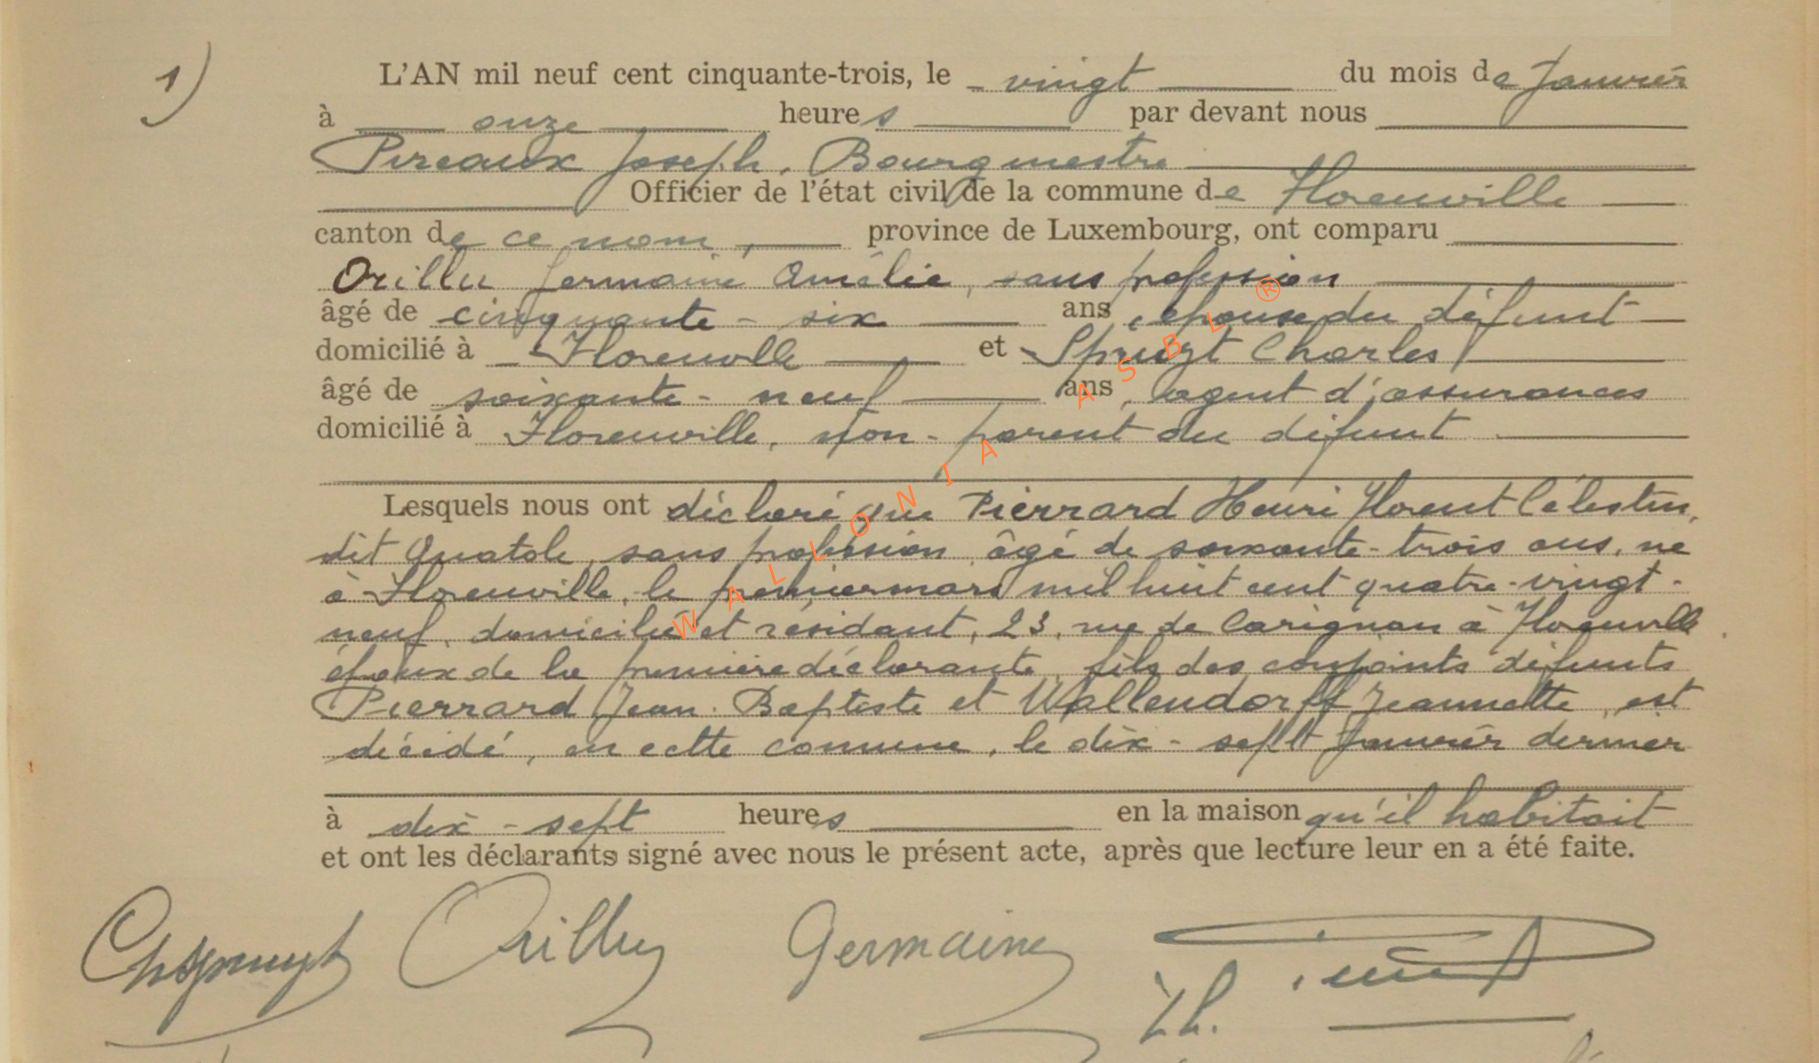 1)
L'AN mil neuf cent cinquante-trois, le vingt du mois de Janvier
à onze heures par devant nous
Pireaux Joseph, Bourgmestre
Officier de l'état civil de la commune de Florenville
canton de ce nom, province de Luxembourg, ont comparu
Orillu Germaine Amélie, sans profession
âgé de cinquante-six ans, épouse du défunt
domicilié à Florenville et Spruyt Charles
âgé de soixante-neuf ans, agent d'assurances
domicilié à Florenville, non-parent du défunt
Lesquels nous ont déclaré que Pierrard Henri Florent Célestin,
dit Anatole, sans profession, âgé de soixante-trois ans, né
à Florenville, le premier mars mil huit cent quatre-vingt-
neuf, domicilié et résidant, 23, rue de Carignan à Florenville
époux de la première déclarante, fils des conjoints défunts
Pierrard Jean-Baptiste et Wallendorff Jeannette, est
décédé, en cette commune, le dix-sept Janvier dernier
à dix-sept heures en la maison qu'il habitait
et ont les déclarants signé avec nous le présent acte, après que lecture leur en a été faite.
Ch Spruyt Orillu Germaine
WALLONIA ASBL ®